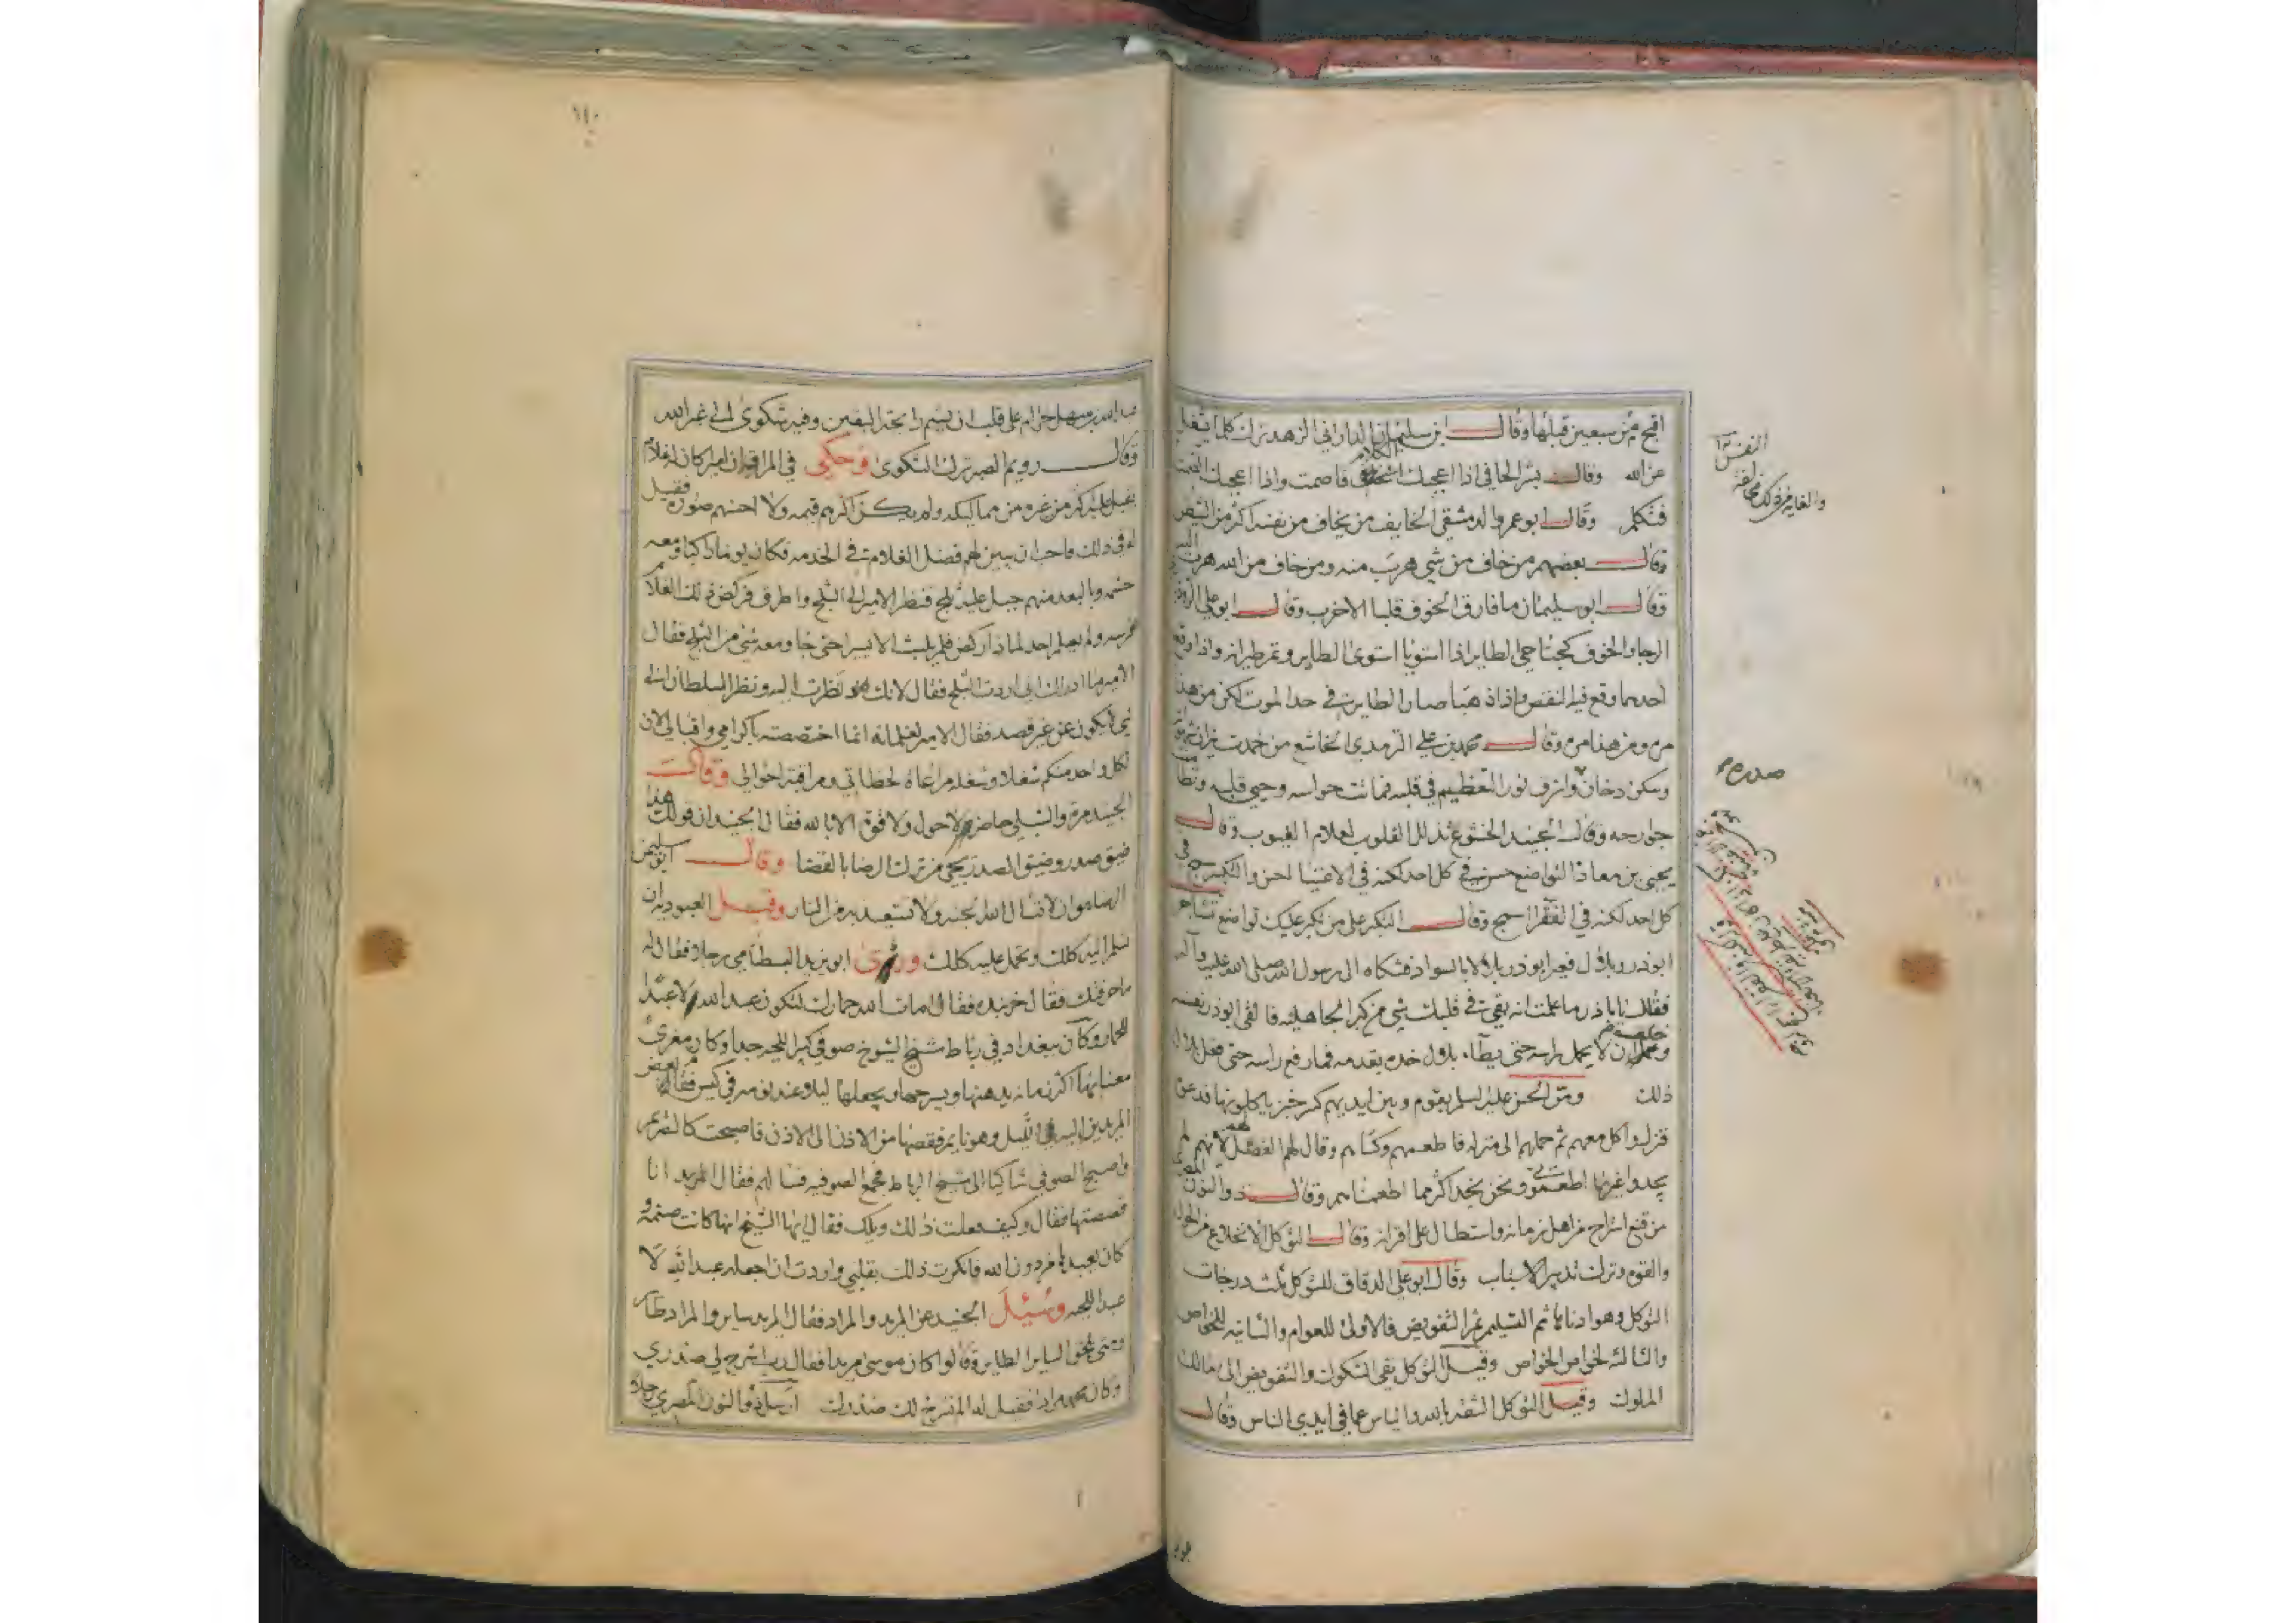 اقبح من سبعين قبلها وقال ابن سليمان الداراني الزهد ترك كلما يشغل
عن الله وقال بشر الحافي اذا اعجبك الكلام فاصمت واذا اعجبك الصمت
فتكلم وقال ابو عمرو الدمشقي الخايف من يخاف من نفسه اكثر من الشيطان
وقال بعضهم من خاف من شي هرب منه ومن خاف من الله هرب اليه
وقال ابو سليمان ما فارق الخوف قلبا الا خرب وقال ابو علي
الرجا والخوف كجناحي الطاير اذا استويا استوى الطاير وتم طيرانه واذا وقع
احدهما وقع فيه النقص واذا ذهبا صار الطاير في حد الموت لكن من هذا
مره ومن هذا مره وقال محمد بن علي الترمذي الخاشع من خمدت نيران
وسكن دخان واشرق نور التعظيم في قلبه فماتت حواسه وحيي قلبه
جوارحه وقال الجنيد الخشوع تذلل القلوب لعلام الغيوب وقال
يحيى بن معاذ التواضع حسن في كل احد لكنه في الاغنيا احسن والتكبر سمج في
كل احد لكنه في الفقرا اسمج وقال التكبر على من تكبر عليك تواضع تشاجر
ابوذر وبلال فعير ابوذر بلالا بالسواد فشكاه الى رسول الله صلى الله عليه وآله
فقال يا باذر ما علمت انه بقيت في قلبك شي من كبر الجاهليه فالقى ابوذر نفسه
ان لا يحمل راسه حتى يطأ بلال خده بقدمه فما رفع راسه حتى فعل بلال
ذلك ومر الحسن عليه السلم بقوم وبين ايديهم كسر خبز ياكلونها فدعوه
فنزل واكل معهم ثم حملهم الى منزله فاطعمهم وكساهم وقال لهم الفضل لانهم لم
يجدوا غير ما اطعموني ونحن نجد اكثر مما اطعمناهم وقال ذو النون المصري
من قنع استراح من اهل زمانه واستطال على اقرانه وقال التوكل الانخلاع من الحول
والقوه وترك تدبير الاسباب وقال ابو علي الدقاق للتوكل ثلث درجات
التوكل وهو ادناها ثم التسليم ثم التفويض فالاولى للعوام والثانيه للخواص
والثالثه لخواص الخواص وقيل التوكل نفي الشكوك والتفويض الى مالك
الملوك وقيل التوكل الثقه بالله والياس عما في ايدي الناس وقال
النفس
صدره
١١٠
عبد الله بن سهل حرام على قلب ان يشم رايحة اليقين وفيه شكوى الى غير الله
وقال رويم الصبر ترك الشكوى وحكي في المراقبه ان امير كان له غلام
يقبل عليه اكثر من غيره من مماليكه ولم يكن اكثرهم قيمه ولا احسنهم صوره فقيل
له في ذلك فاحب ان يبين لهم فضل الغلام في الخدمه فكان يوما راكبا ومعه
حشمه وبالبعد منهم جبل عليه ثلج فنظر الامير الى الثلج واطرق فركض ذلك الغلام
فرسه ولم يعلم احد لماذا ركض فلم يلبث الا يسيرا حتى جا ومعه شي من الثلج فقال
الامير ما ادراك اني اردت الثلج فقال لانك نظرت اليه ونظر السلطان الى
شي لا يكون عن غير قصد فقال الامير لغلمانه انما اختصصته باكرامي واقبالي لان
لكل واحد منكم شغلا وشغله مراعاة لحظاتي ومراقبة احوالي وقال
الجنيد مرة والشبلي حاضر لاحول ولا قوة الا بالله فقال الجنيد ان قولك هذا
ضيق صدر وضيق الصدر يجي من ترك الرضا بالقضا وقال ابو سليمن
الرضا هو ان لا تسال الله الجنه ولا تستعيذ به من النار وقيل العبوديه ان
تسلم اليه كلك وتحمل عليه كلك ورأى ابو يزيد البسطامي رجلا فقال له
ما حرفتك فقال خربنده فقال امات الله حمارك لتكون عبد الله لا عبد
للحمار وكان ببغداد في رباط شيخ الشيوخ صوفي كبير اللحيه جدا وكان مغرى
معنا بها اكثر زمانه يدهنها ويسرحها ويجعلها ليلا عند نومه في كيس فقام بعض
المريدين اليه في الليل وهو نايم فقصها من الاذن الى الاذن فاصبحت كالصريم
واصبح الصوفي شاكيا الى شيخ الرباط فجمع الصوفيه فسالهم فقال المريد انا
قصصتها فقال وكيف فعلت ذلك ويلك فقال ايها الشيخ انها كانت صنمه و
كان يعبدها من دون الله فانكرت ذلك بقلبي واردت ان اجعله عبد الله لا
عبد اللحيه وسئل الجنيد عن المريد والمراد فقال المريد ساير والمراد طاير
ومتى يلحق الساير الطاير وقالوا كان موسى مريدا فقال رب اشرح لي صدري
وكان محمد مراد فقيل له الم نشرح لك صدرك ارسل ذو النون المصري رجلا